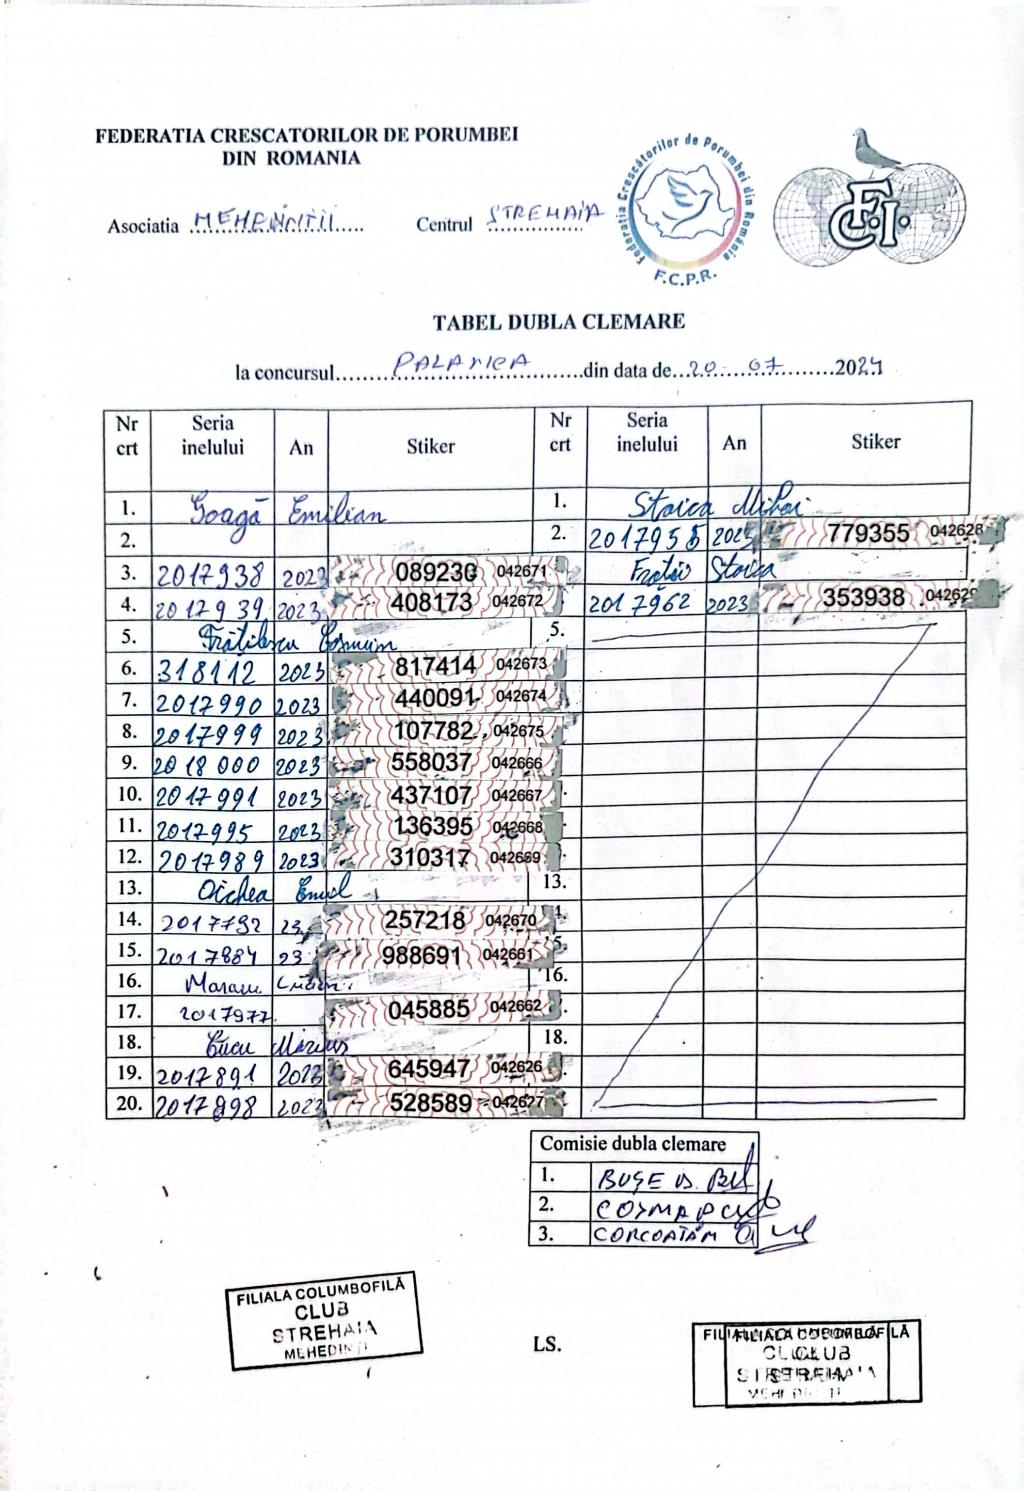 FEDERATIA CRESCATORILOR DE PORUMBEI
DIN ROMANIA
Federatia Crescătorilor de Porumbei din România
F.C.P.R.
F.C.I.
Asociatia MEHEDINTII Centrul STREHAIA
TABEL DUBLA CLEMARE
la concursul PALANCA din data de 20.07 2024
Nr crt Seria inelului An Stiker Nr crt Seria inelului An Stiker
1. Goagă Emilian 1. Stoica Mihai
2. 2. 2017955 2023 779355 042628
3. 2017938 2023 089230 042671 Stoica
4. 2017939 2023 408173 042672 2017962 2023 353938 042629
5. Frătilescu Cosmin 5.
6. 318112 2023 817414 042673
7. 2017990 2023 440091 042674
8. 2017999 2023 107782 042675
9. 2018000 2023 558037 042666
10. 2017991 2023 437107 042667
11. 2017995 2023 136395 042668
12. 2017989 2023 310317 042669
13. Oichea Emil 13.
14. 2017792 23 257218 042670
15. 2017884 23 988691 042661
16. 16.
17. 2017977 045885 042662
18. Cucu Marius 18.
19. 2017891 2023 645947 042626
20. 2017898 2023 528589 042627
Comisie dubla clemare
1. BUȘE
2. COSMA
3.
FILIALA COLUMBOFILĂ
CLUB
STREHAIA
MEHEDINȚI
LS.
FILIALA COLUMBOFILĂ
CLUB
STREHAIA
MEHEDINȚI